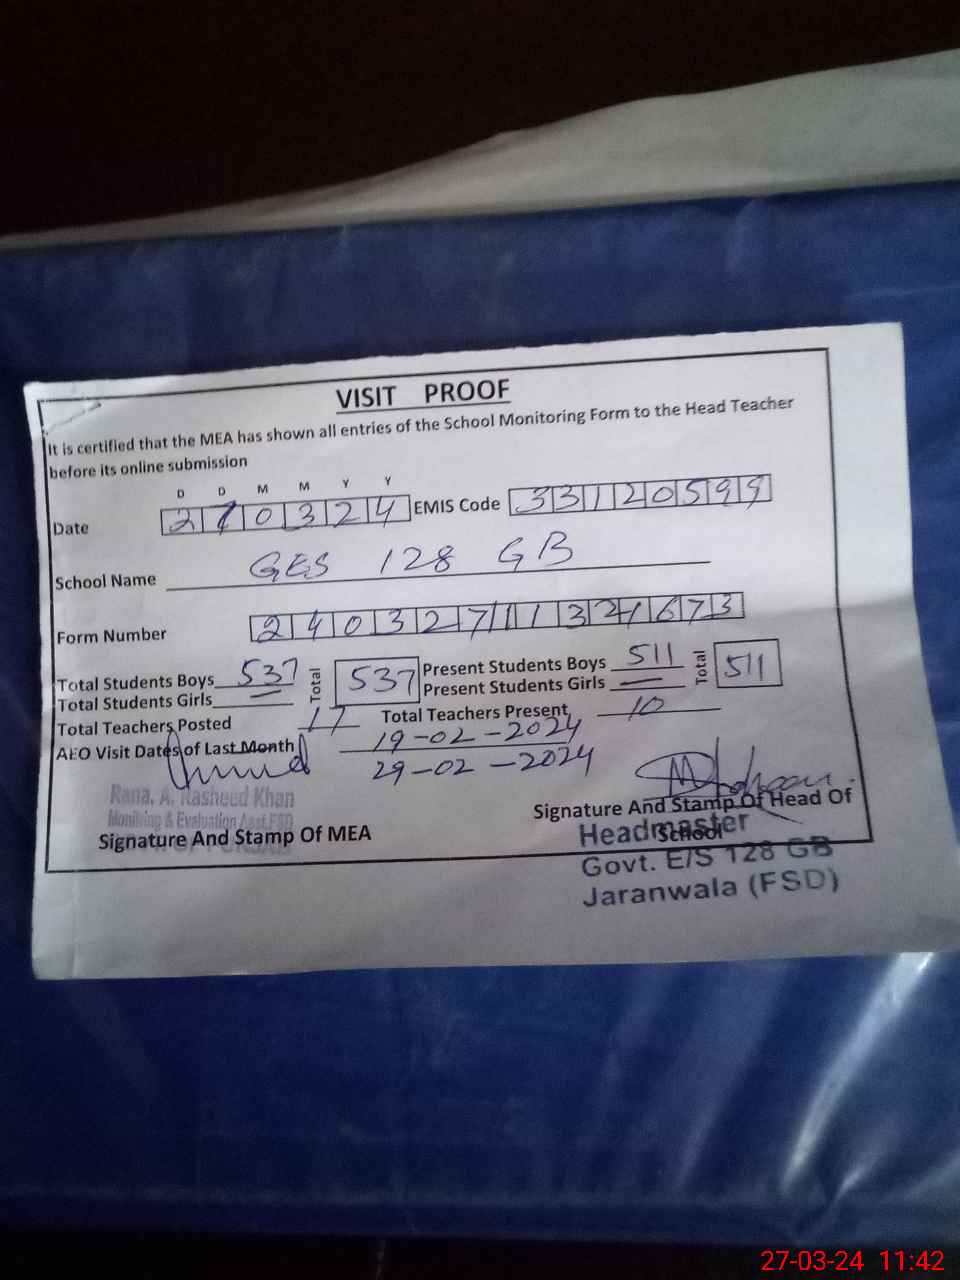 VISIT PROOF
It is certified that the MEA has shown all entries of the School Monitoring Form to the Head Teacher
before its online submission
D D M M Y Y
Date 270324 EMIS Code 33120599
School Name GES 128 GB
Form Number 240327113
Total Students Boys 537 Total 537 Present Students Boys 511 Total 511
Total Students Girls — Present Students Girls —
Total Teachers Posted 17 Total Teachers Present 10
AEO Visit Dates of Last Month 19-02-2024
29-02-2024
Rana. A. Rasheed Khan
Monitoring & Evaluation Asst FSD
Signature And Stamp Of MEA
Signature And Stamp Of Head Of
School
Headmaster
Govt. E/S 128 GB
Jaranwala (FSD)
27-03-24 11:42